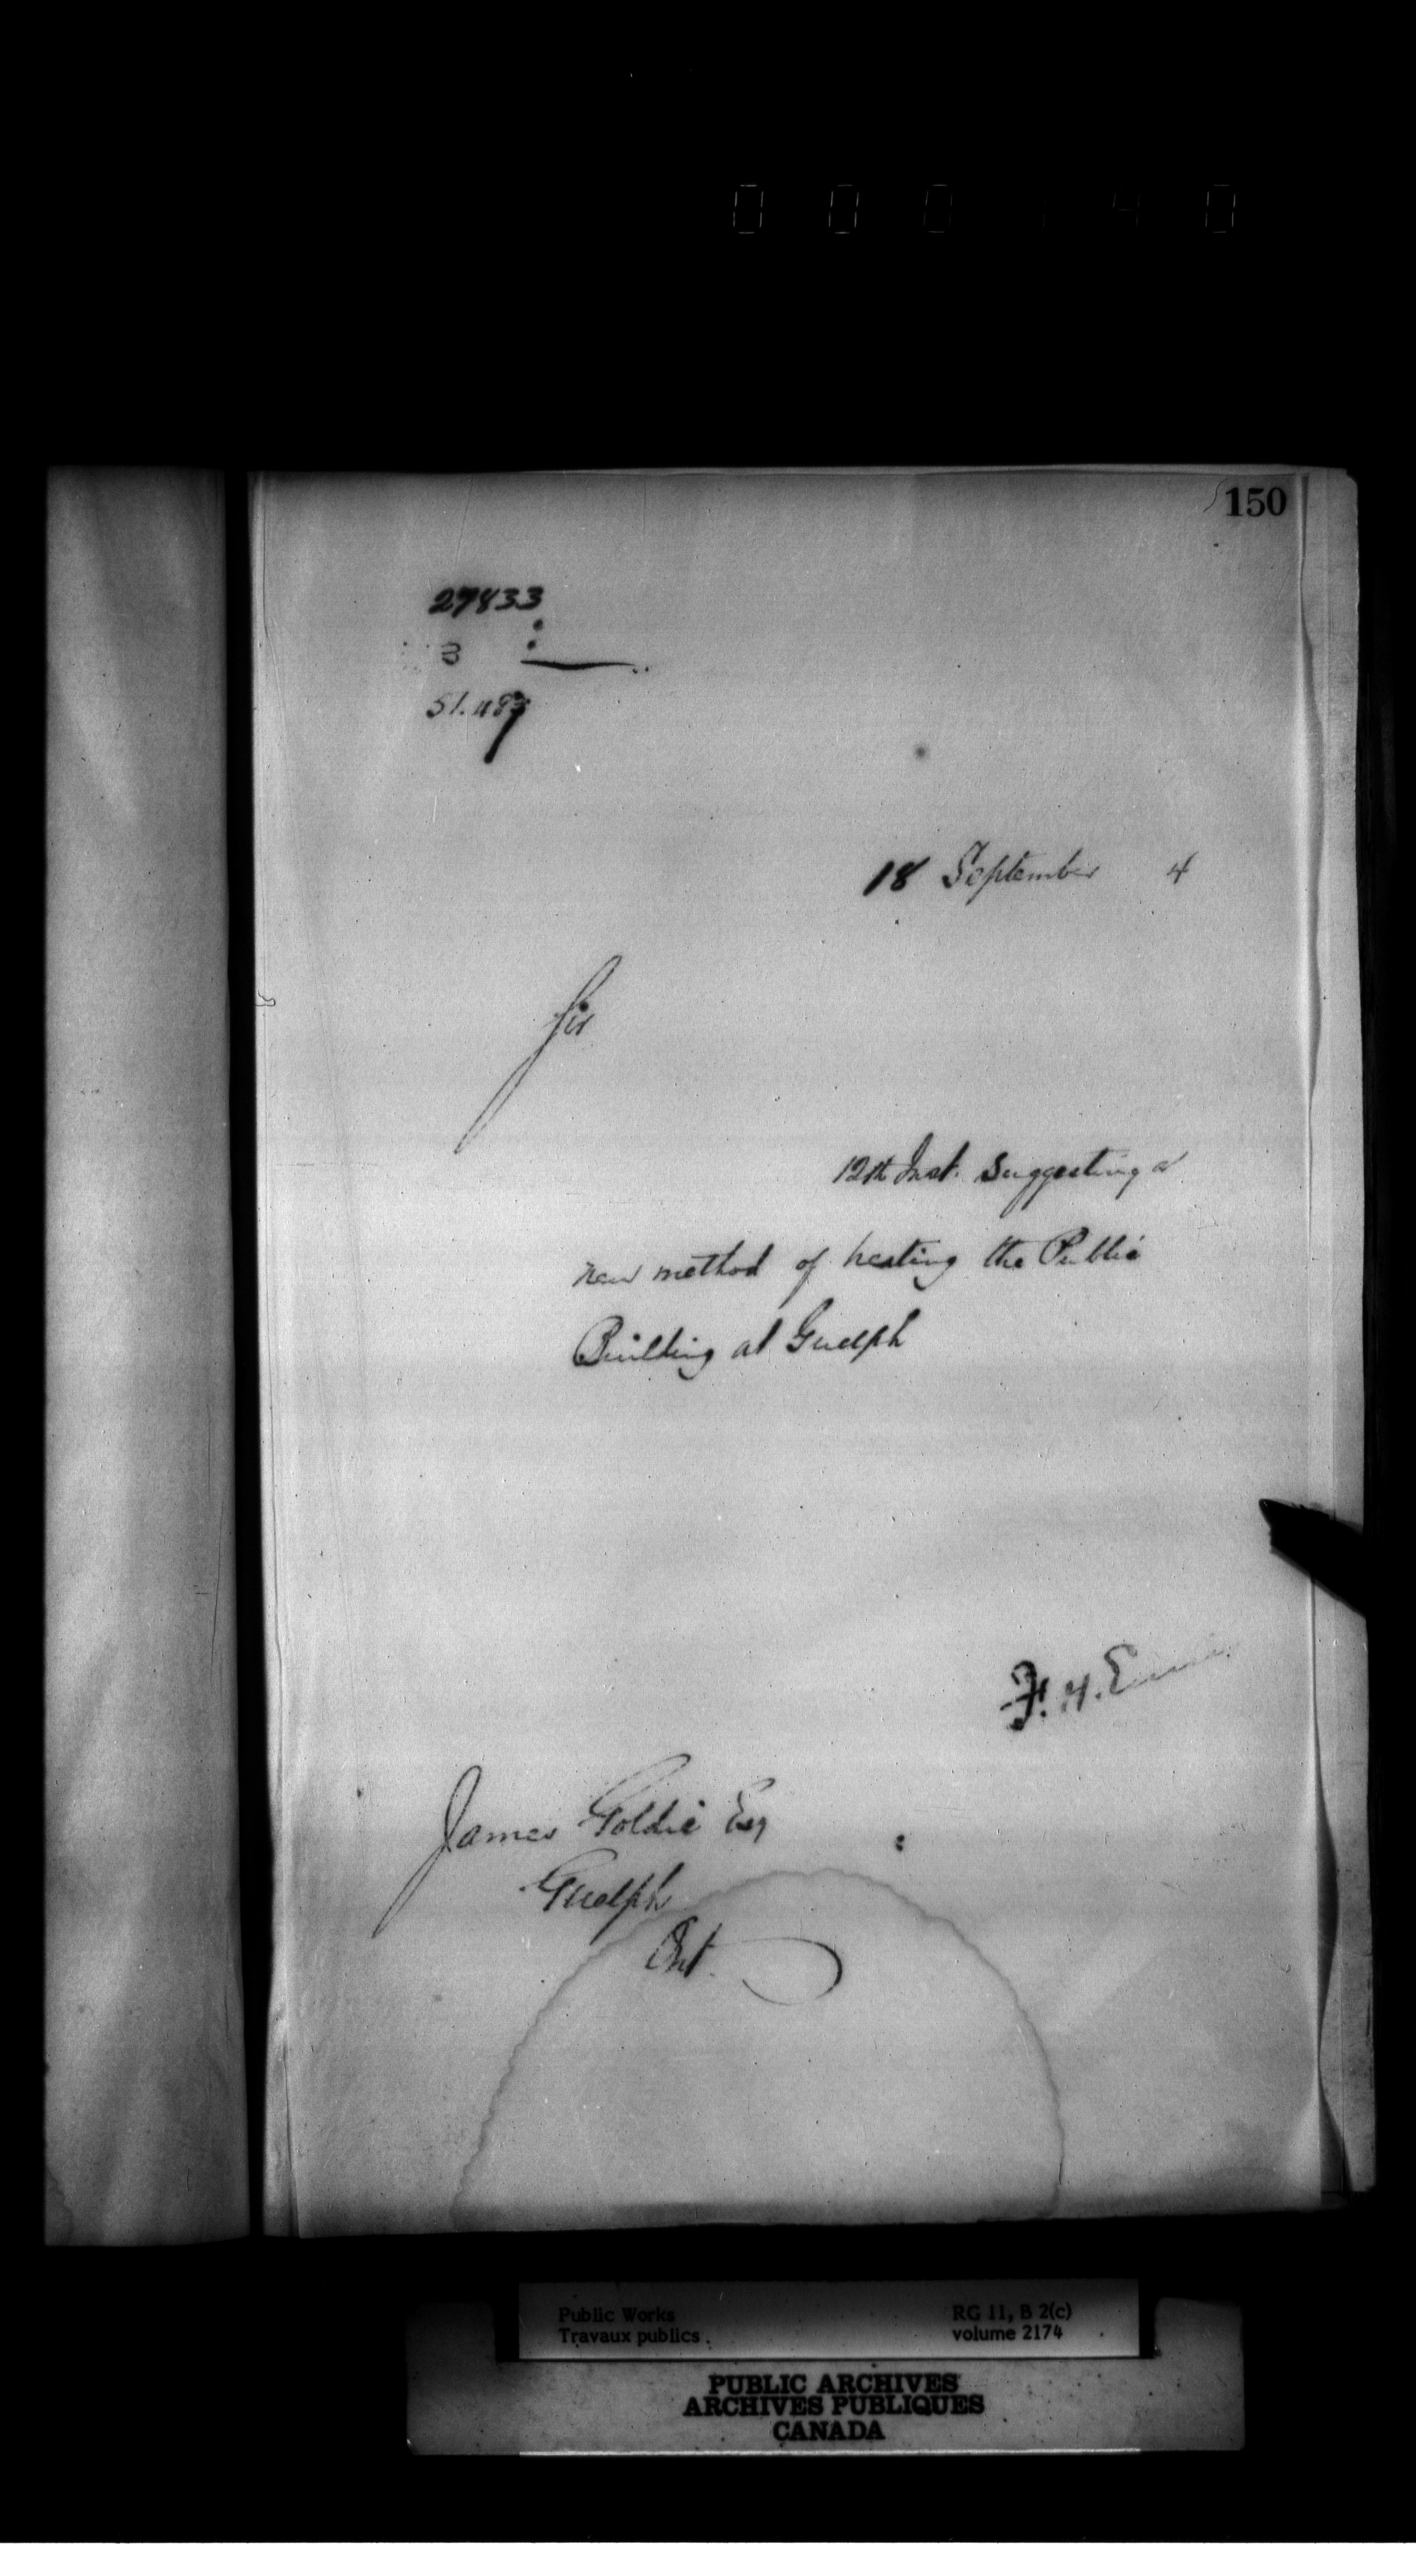 150
27833
3
18 September 4
Sir
12th Inst. Suggesting a
new method of heating the Public
Building at Guelph
F. H. Ennis
James Goldie Esq
Guelph
Ont.
Public Works
Travaux publics
RG 11, B 2(c)
volume 2174
PUBLIC ARCHIVES
ARCHIVES PUBLIQUES
CANADA